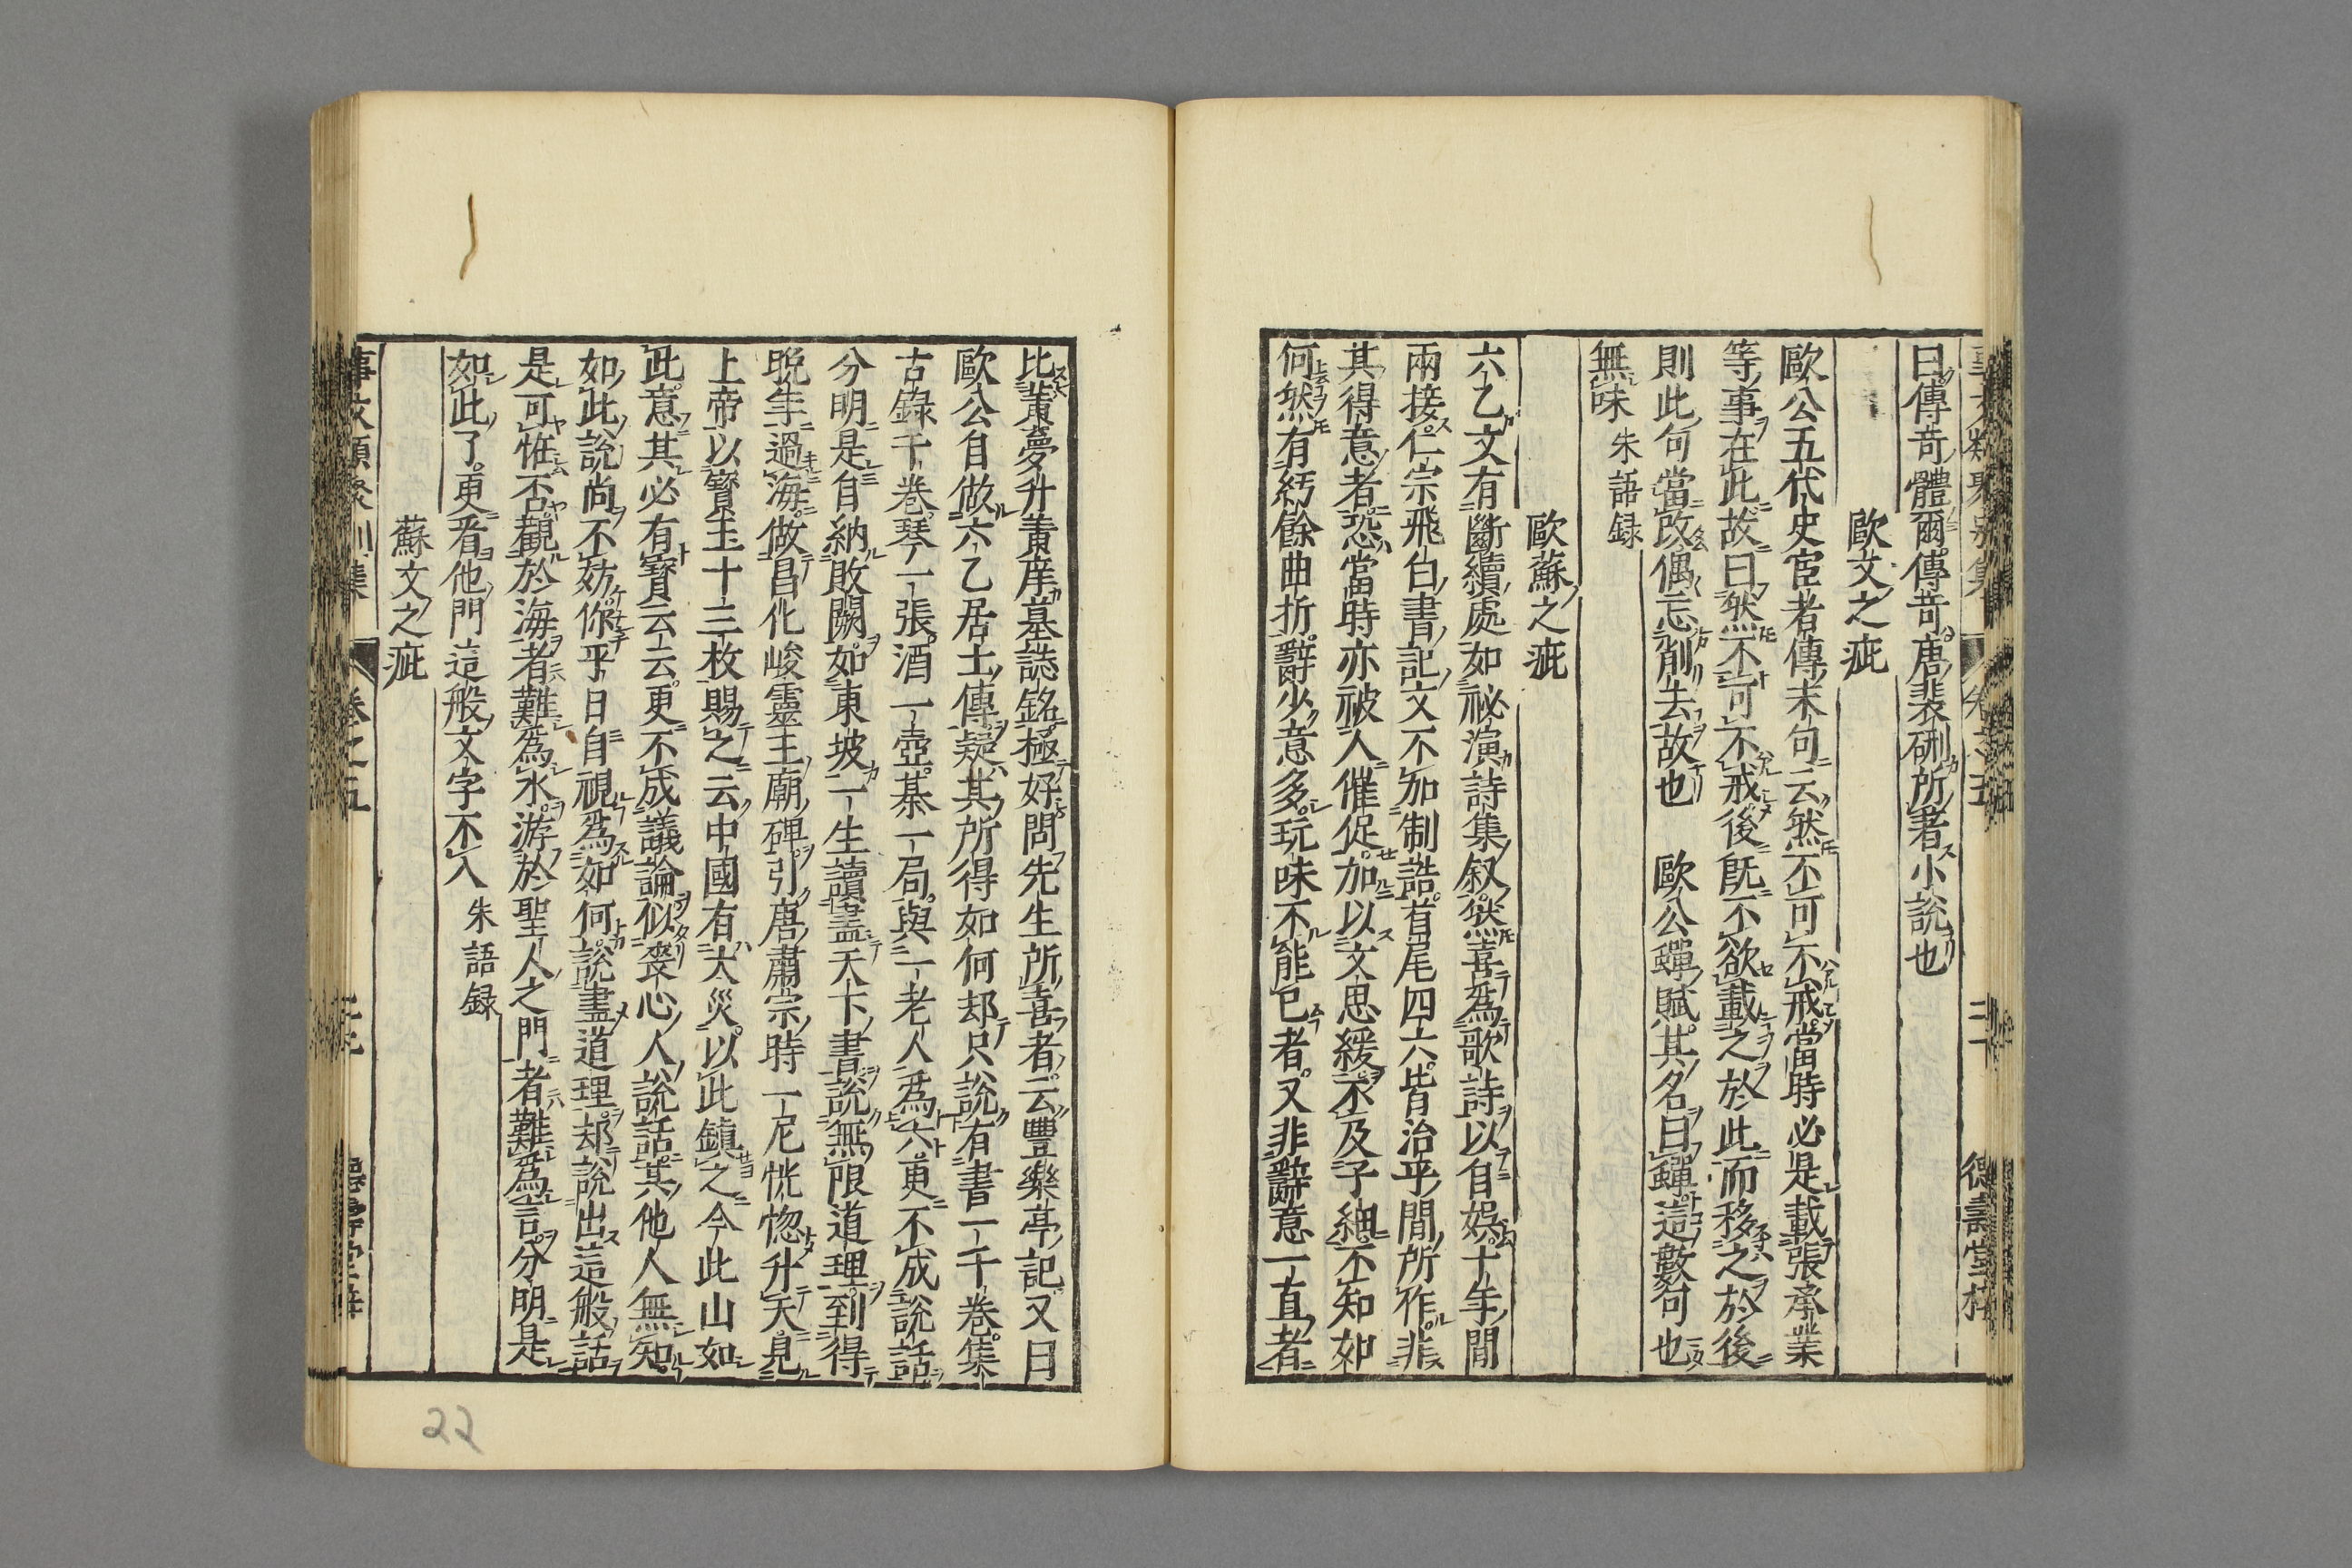 曰傳奇體爾傳奇唐裴硎所著小說也
歐文之疵
歐公五代史宦者傳末句云然不可不戒當時必是載張承業
等事在此故曰然不可不戒後既不欲載之於此而移之於後
則此句當改偶忘削去故也 歐公蟬賦其名曰蟬這數句也
無味 朱語録
歐蘇之疵
六乙文有斷續處如祕演詩集叙然喜爲歌詩以自娯十年間
兩接仁宗飛白書記文不加制誥首尾四六皆治平間所作非
其得意者恐當時亦被人催促加以文思緩不及子細不知如
何然有紆餘曲折辭少意多玩味不能已者又非辭意一直者
比黃夢升黃庠墓誌銘極好問先生所喜者云豐樂亭記又曰
歐公自做六乙居士傳疑其所得如何却只說有書一千卷集
古錄千卷琴一張酒一壺棊一局與一老人爲六更不成說話
分明是自納敗闕如東坡一生讀盡天下書說無限道理到得
晚年過海做昌化峻靈王廟碑引唐肅宗時一尼恍惚升天見
上帝以寳玉十三枚賜之云中國有大災以此鎮之今此山如
此意其必有寳云云更不成議論似喪心人說話其他人無知
如此說尚不妨你平日自視爲如何說盡道理却說出這般話
是可怪否觀於海者難爲水游於聖人之門者難爲言分明是
如此了更看他門這般文字不入 朱語録
蘇文之疵
卷之五
德壽堂梓
22